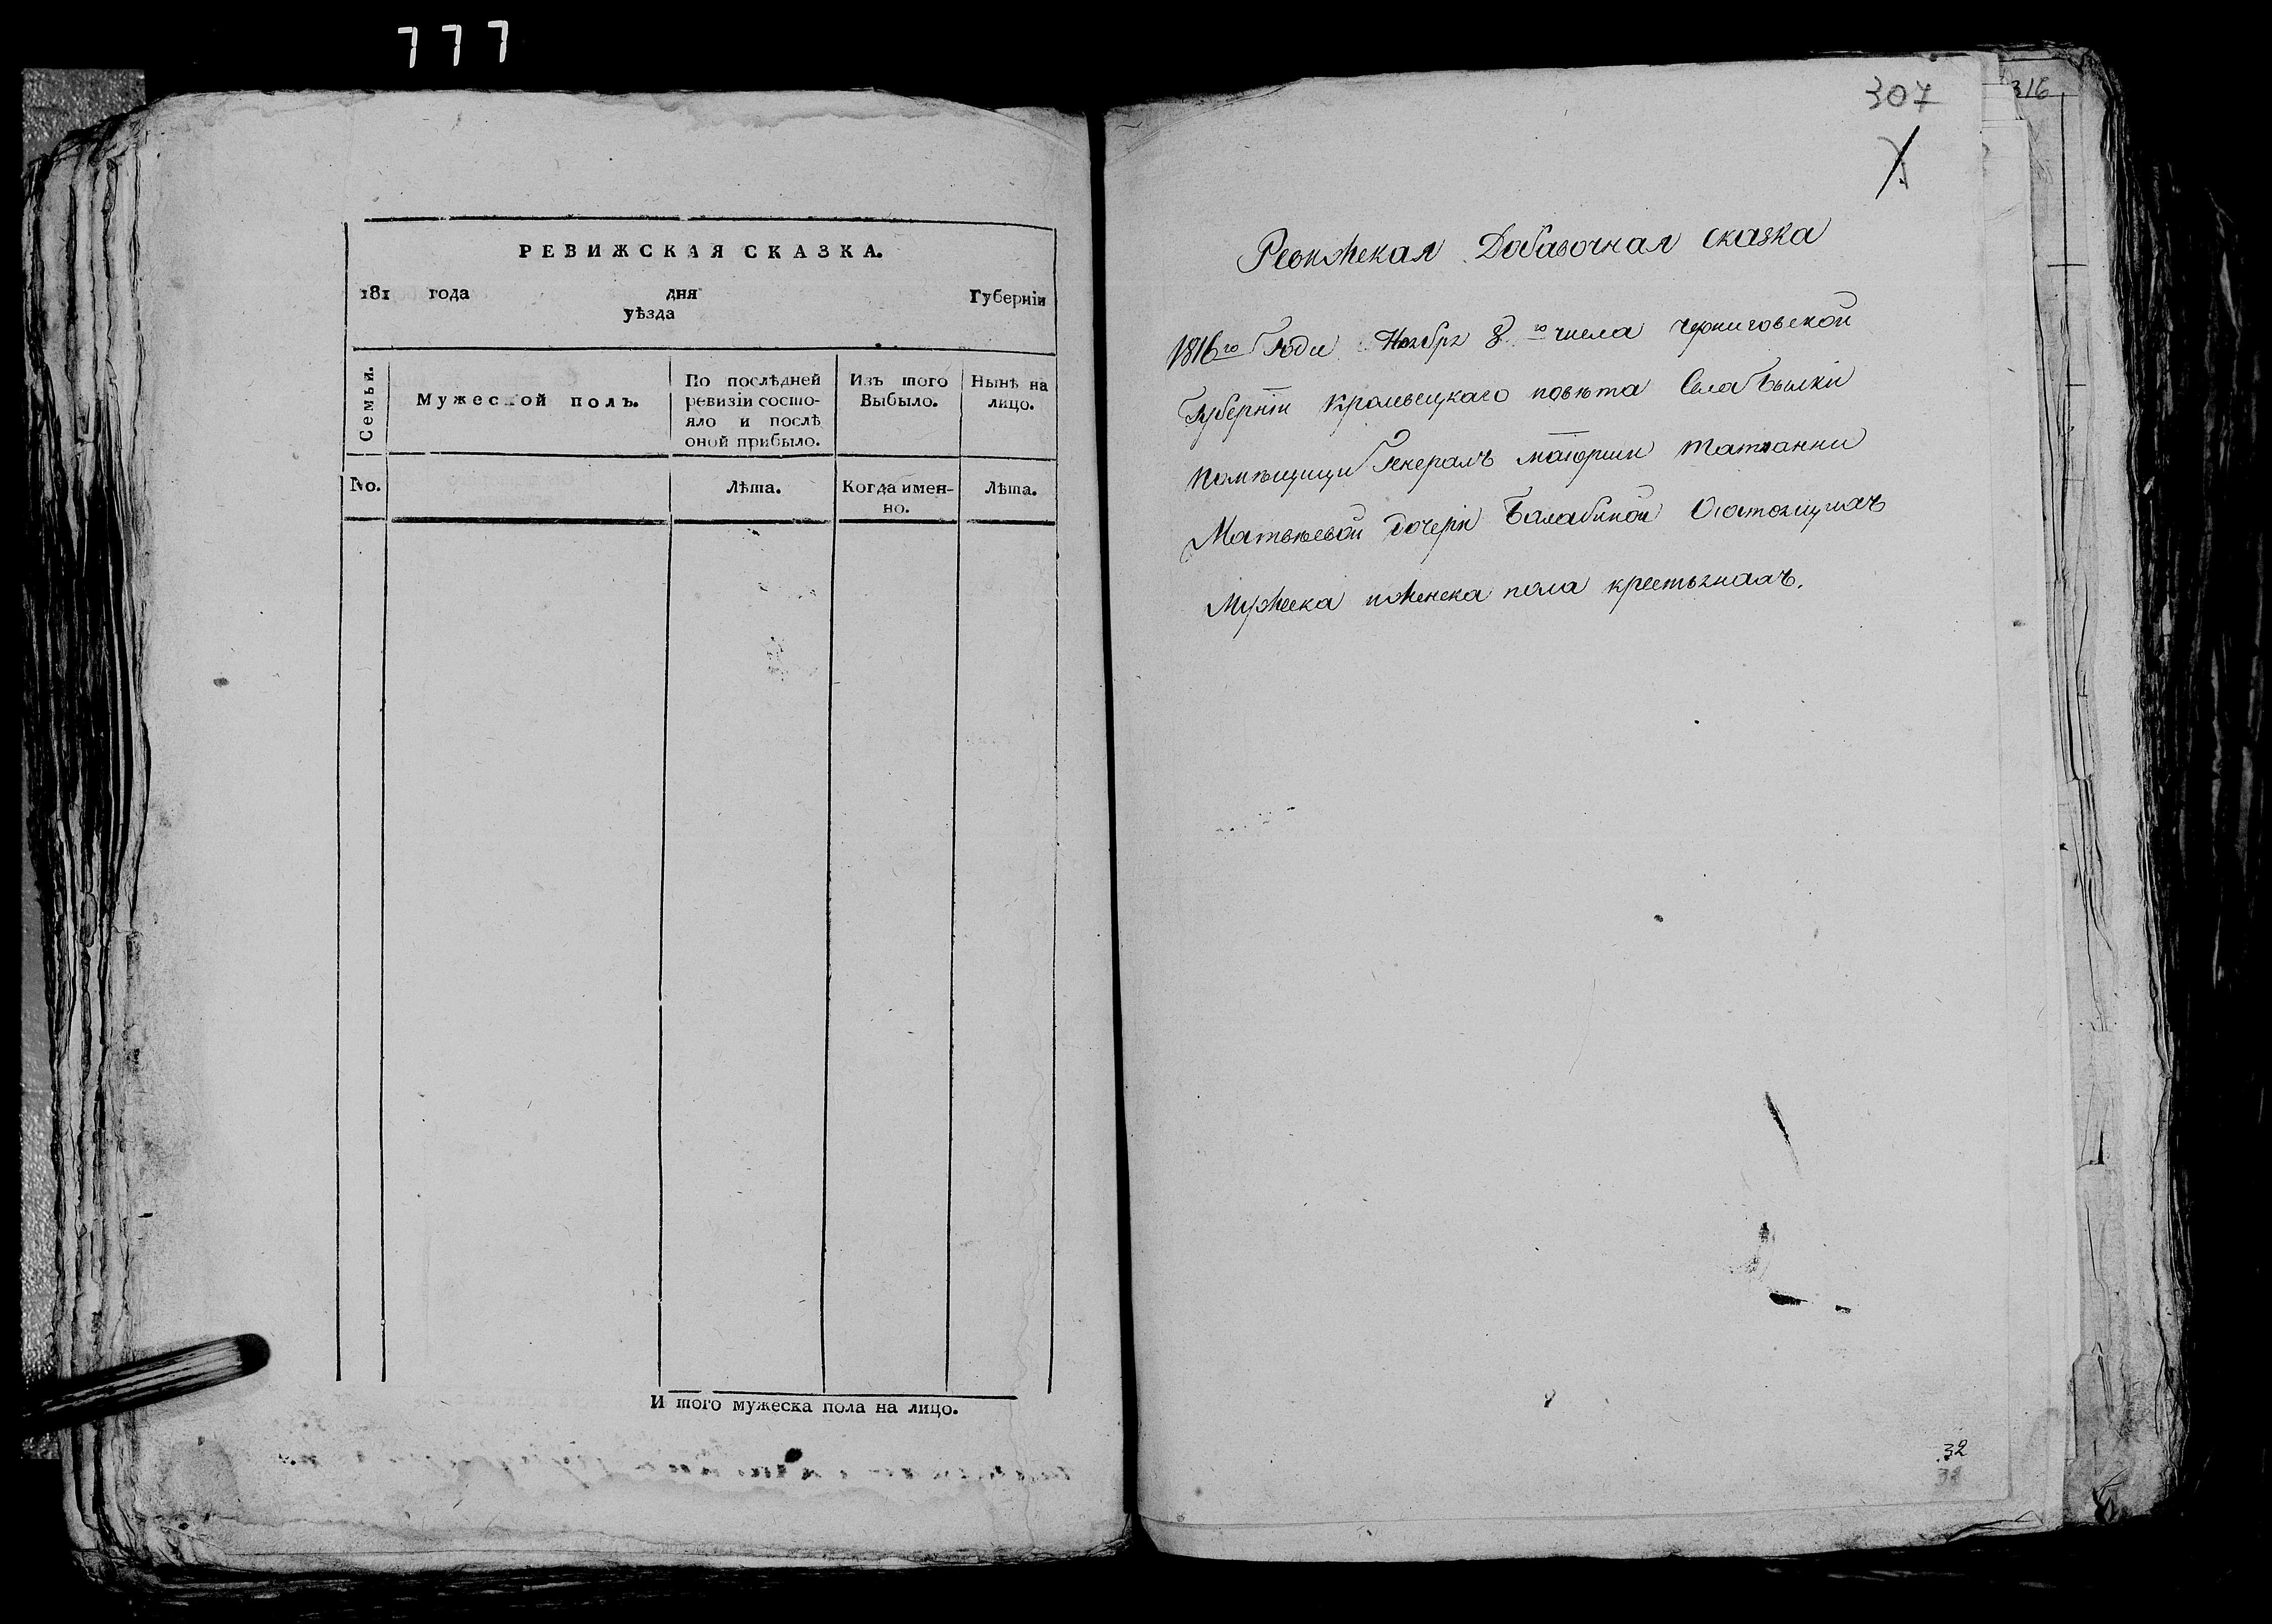 777
РЕВИЖСКАЯ СКАЗКА.
181 года дня Губерніи
уѣзда
Семьи.
Мужеской полъ.
По послѣдней
ревизіи состо-
яло и послѣ
оной прибыло.
Изъ того
Выбыло.
Нынѣ на
лицо.
No.
Лѣта.
Когда имен-
но.
Лѣта.
И того мужеска пола на лицо.
307
316
Ревижская Добавочная сказка
1816го Года Ноября 8го числа Черниговской
Губерніи Кролевецкаго повѣта Села Быліки
Помѣщици Генералъ маіорши Татіанни
Матвѣевой дочери Балабиной О состоящихъ
Мужеска и женска пола крестьянахъ.
32